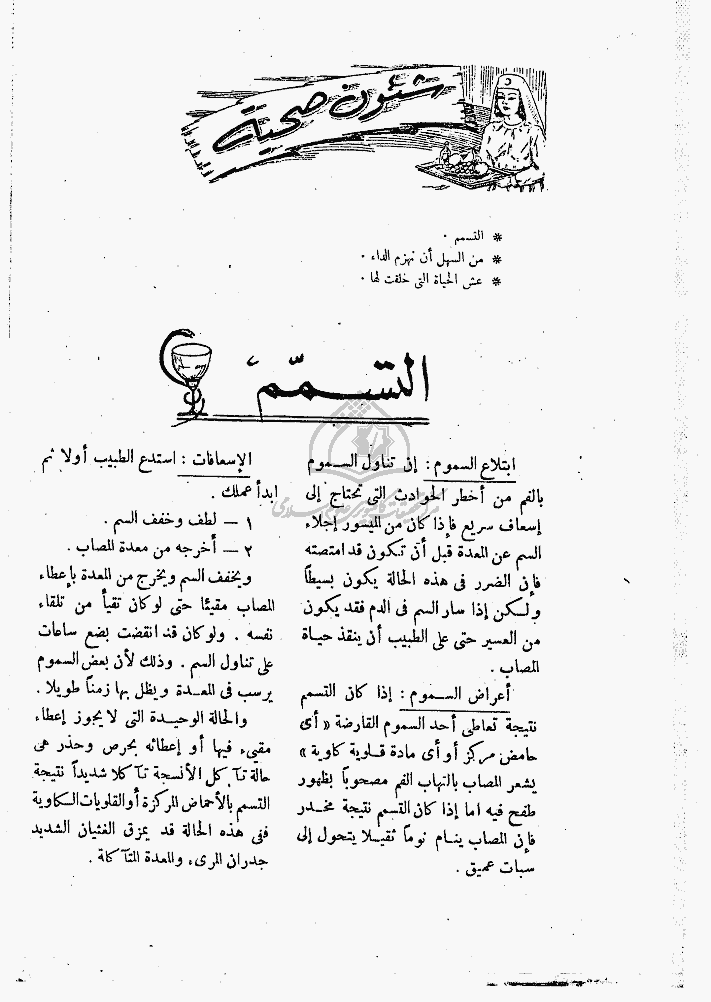 شئون صحية
* التسمم .
* من السهل أن نهزم الداء .
* عش الحياة التى خلقت لها .
التسمّم
ابتلاع السموم : إن تناول السموم
بالفم من أخطر الحوادث التى تحتاج إلى
إسعاف سريع فإذا كان من الميسور إجلاء
السم عن المعدة قبل أن تكون قد امتصته
فإن الضرر فى هذه الحالة يكون بسيطاً
ولكن إذا سار السم فى الدم فقد يكون
من العسير حتى على الطبيب أن ينقذ حياة
المصاب .
أعراض السموم : إذا كان التسمم
نتيجة تعاطى أحد السموم القارضة « أى
حامض مركز أو أى مادة قلوية كاوية »
يشعر المصاب بالتهاب الفم مصحوباً بظهور
طفح فيه اما إذا كان التسمم نتيجة مخدر
فإن المصاب ينام نوماً ثقيلا يتحول إلى
سبات عميق .
الإسعافات : استدع الطبيب أولا ثم
ابدأ عملك .
١ — لطف وخفف السم .
٢ — أخرجه من معدة المصاب .
ويخفف السم ويخرج من المعدة بإعطاء
المصاب مقيئا حتى لو كان تقيأ من تلقاء
نفسه . ولو كان قد انقضت بضع ساعات
على تناول السم . وذلك لأن بعض السموم
يرسب فى المعدة ويظل بها زمناً طويلا .
والحالة الوحيدة التى لا يجوز إعطاء
مقيء فيها أو إعطائه بحرص وحذر هى
حالة تآكل الأنسجة تآكلا شديداً نتيجة
التسمم بالأحماض المركزة أو القلويات الكاوية
ففى هذه الحالة قد يمزق الغثيان الشديد
جدران المرىء والمعدة المتآكلة .